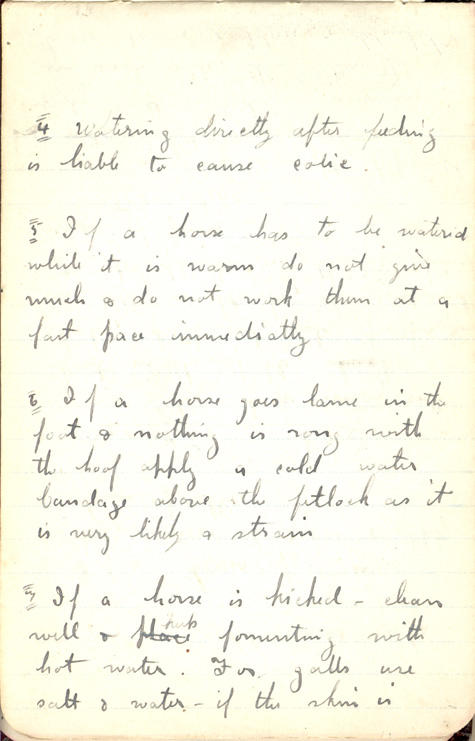 4 Watering directly after feeding
is liable to cause colic.
5 If a horse has to be watered
while it is warm do not give
much & do not work them at a
fast pace immediatly
6 If a horse goes lame in the
foot & nothing is rong with
the hoof apply a cold water
bandage above the fetlock as it
is very likely a strain
7 If a horse is kicked - clean
keep
well & place fomenting with
hot water. For galls use
salt & water - if the skin is